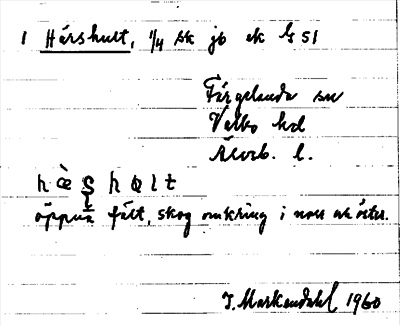 1 Hårshult, 1/4 sk jb ek G 51
Färgelanda sn
Valbo hd
Älvsb. l.
öppna fält, skog omkring i norr och öster.
I. Markendahl 1960